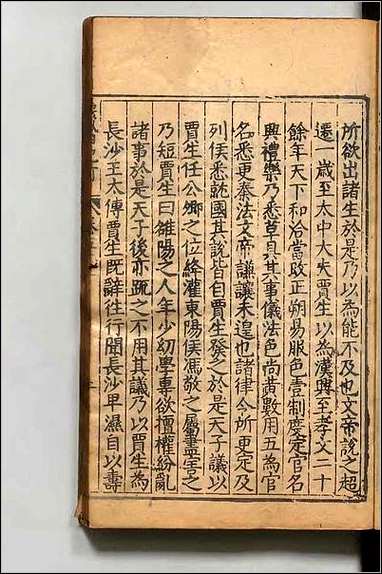 所欲出諸生於是乃以為能不及也文帝說之超
遷一歲至太中大夫賈生以為漢興至孝文二十
餘年天下和洽當改正朔易服色壹制度定官名
興禮樂乃悉草具其事儀法色尚黃數用五為官
名悉更秦法文帝謙讓未遑也諸律令所更定及
列侯悉就國其說皆自賈生發之於是天子議以
賈生任公卿之位絳灌東陽侯馮敬之屬盡害之
乃短賈生曰雒陽之人年少初學專欲擅權紛亂
諸事於是天子後亦疏之不用其議乃以賈生為
長沙王太傅賈生既辭往行聞長沙卑濕自以壽